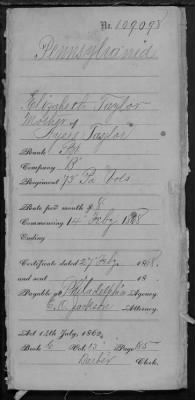 No. 109098
Pennsylvania
Elizabeth Taylor
Mother of
Taylor
Rank Pvt
Company B
Regiment 73 Pa Vols
Rate per month $8
Commencing 14 Feby 1868
Ending
Certificate dated 27 Feby 1868.
and sent 18
Payable at Philadelphia Agency.
Jackson Attorney.
Act 14th July, 1862.
Book G Vol. 13 Page 185
Clerk.